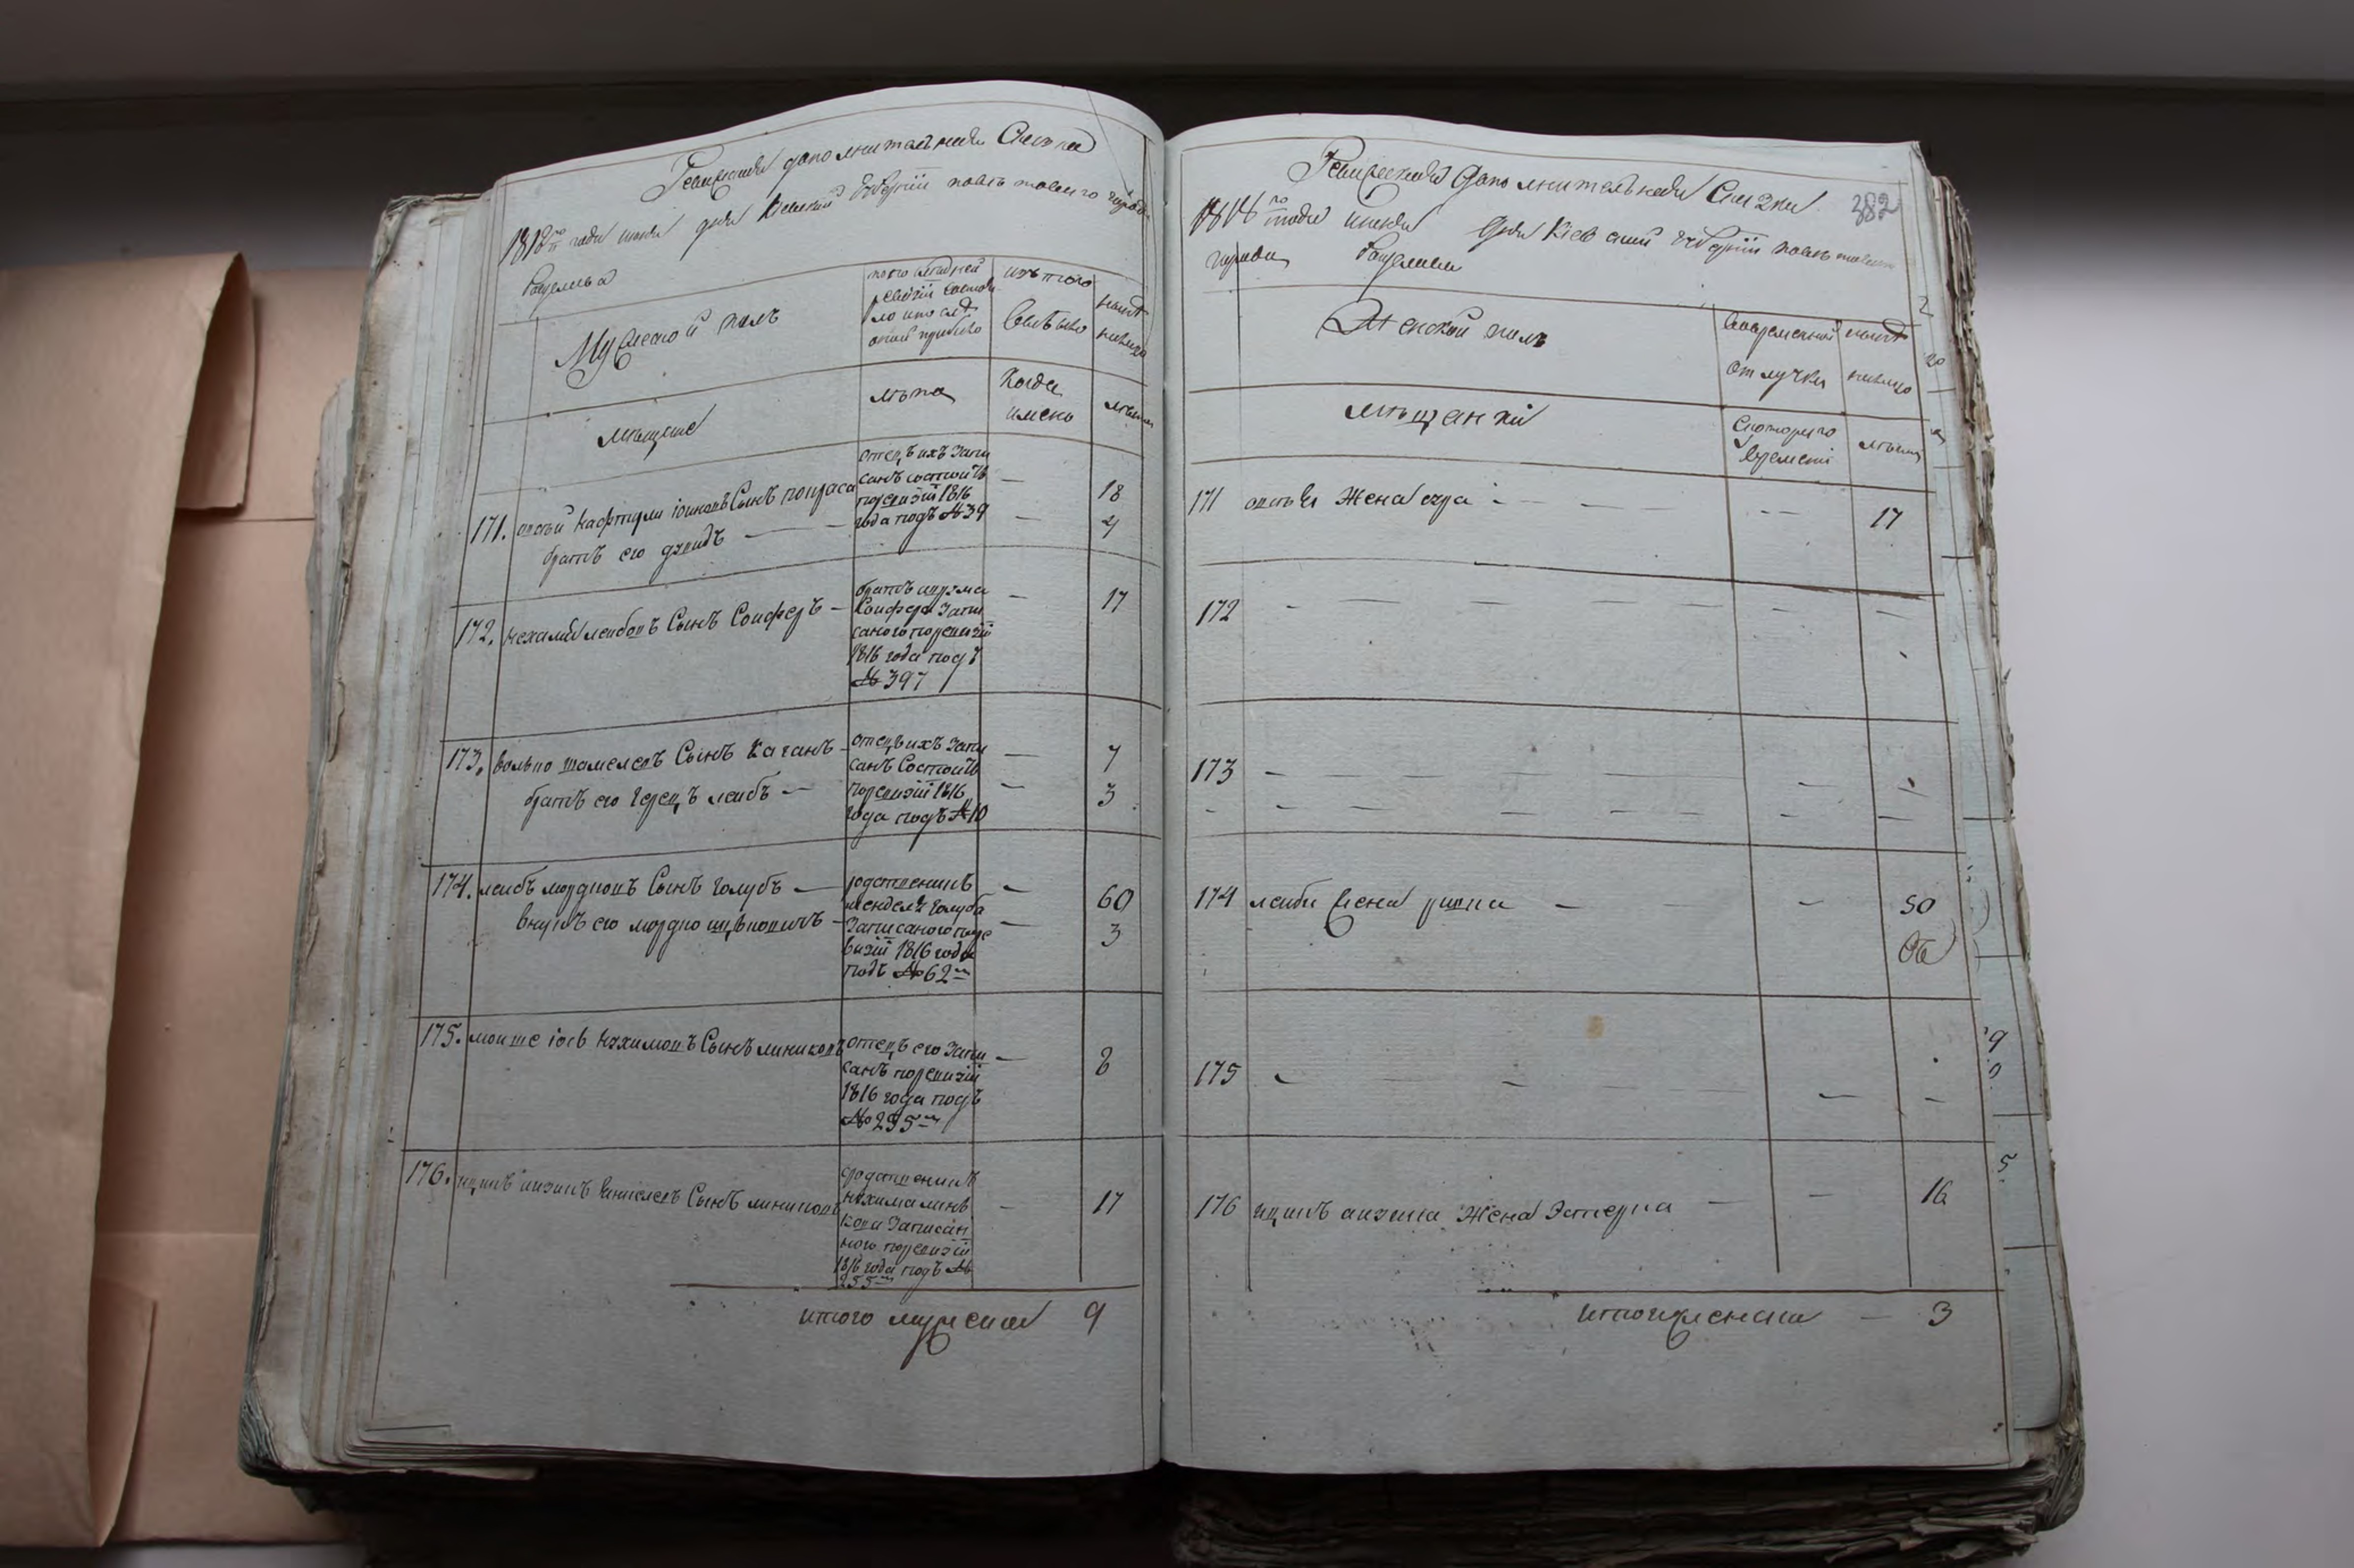 Ревизская дополнительная Сказка
1818го года июня дня Киевской Губернии поветового города
Рацелева
Мужеской полъ
по последней
ревизии состоя
ло и после
оной прибыло
изъ того
выбыло
ныне
налицо
лета
Когда
имено
лета
мещане
171. сынъ попраса
братъ его давидъ
отецъ ихъ запи
санъ состоитъ
поревизіи 1816
года подъ № 39
18
4
172. нехамія леибовъ Сынъ Соиферъ
братъ
Соифера запи
саного поревизіи
1816 года подъ
№ 397
17
173. вольпо шамелевъ Сынъ Каганъ
братъ его герецъ леибъ
отецъ ихъ запи
санъ Состоитъ
поревизіи 1816
года подъ № 10
7
3
174. леибъ мордковъ Сынъ голубъ
внукъ его мордко ицковичъ
родственникъ
менделя голуба
записаного поре
визіи 1816 года
подъ № 62м
60
3
175. моише іосъ нухимовъ Сынъ линиковъ
отецъ его запи
санъ поревизіи
1816 года подъ
№ 255м
8
176. ицикъ аизикъ Сынъ линиковъ
родственникъ
нухима лини
кова записан
ного поревизіи
1816 года подъ №
255м
17
итого мужеска 9
Ревизская Дополнительная Сказка
382
1818го года июня Дня Кіевской Губерніи поветового
города
Женской полъ
вовременной
отлучке
ныне
налицо
мещанкі
Скоторого
времени
лета
171 жена сура 17
172
173
174 леиба жена ривка 50
175
176 ицикъ аизика жена Эстерка 16
итого женска 3